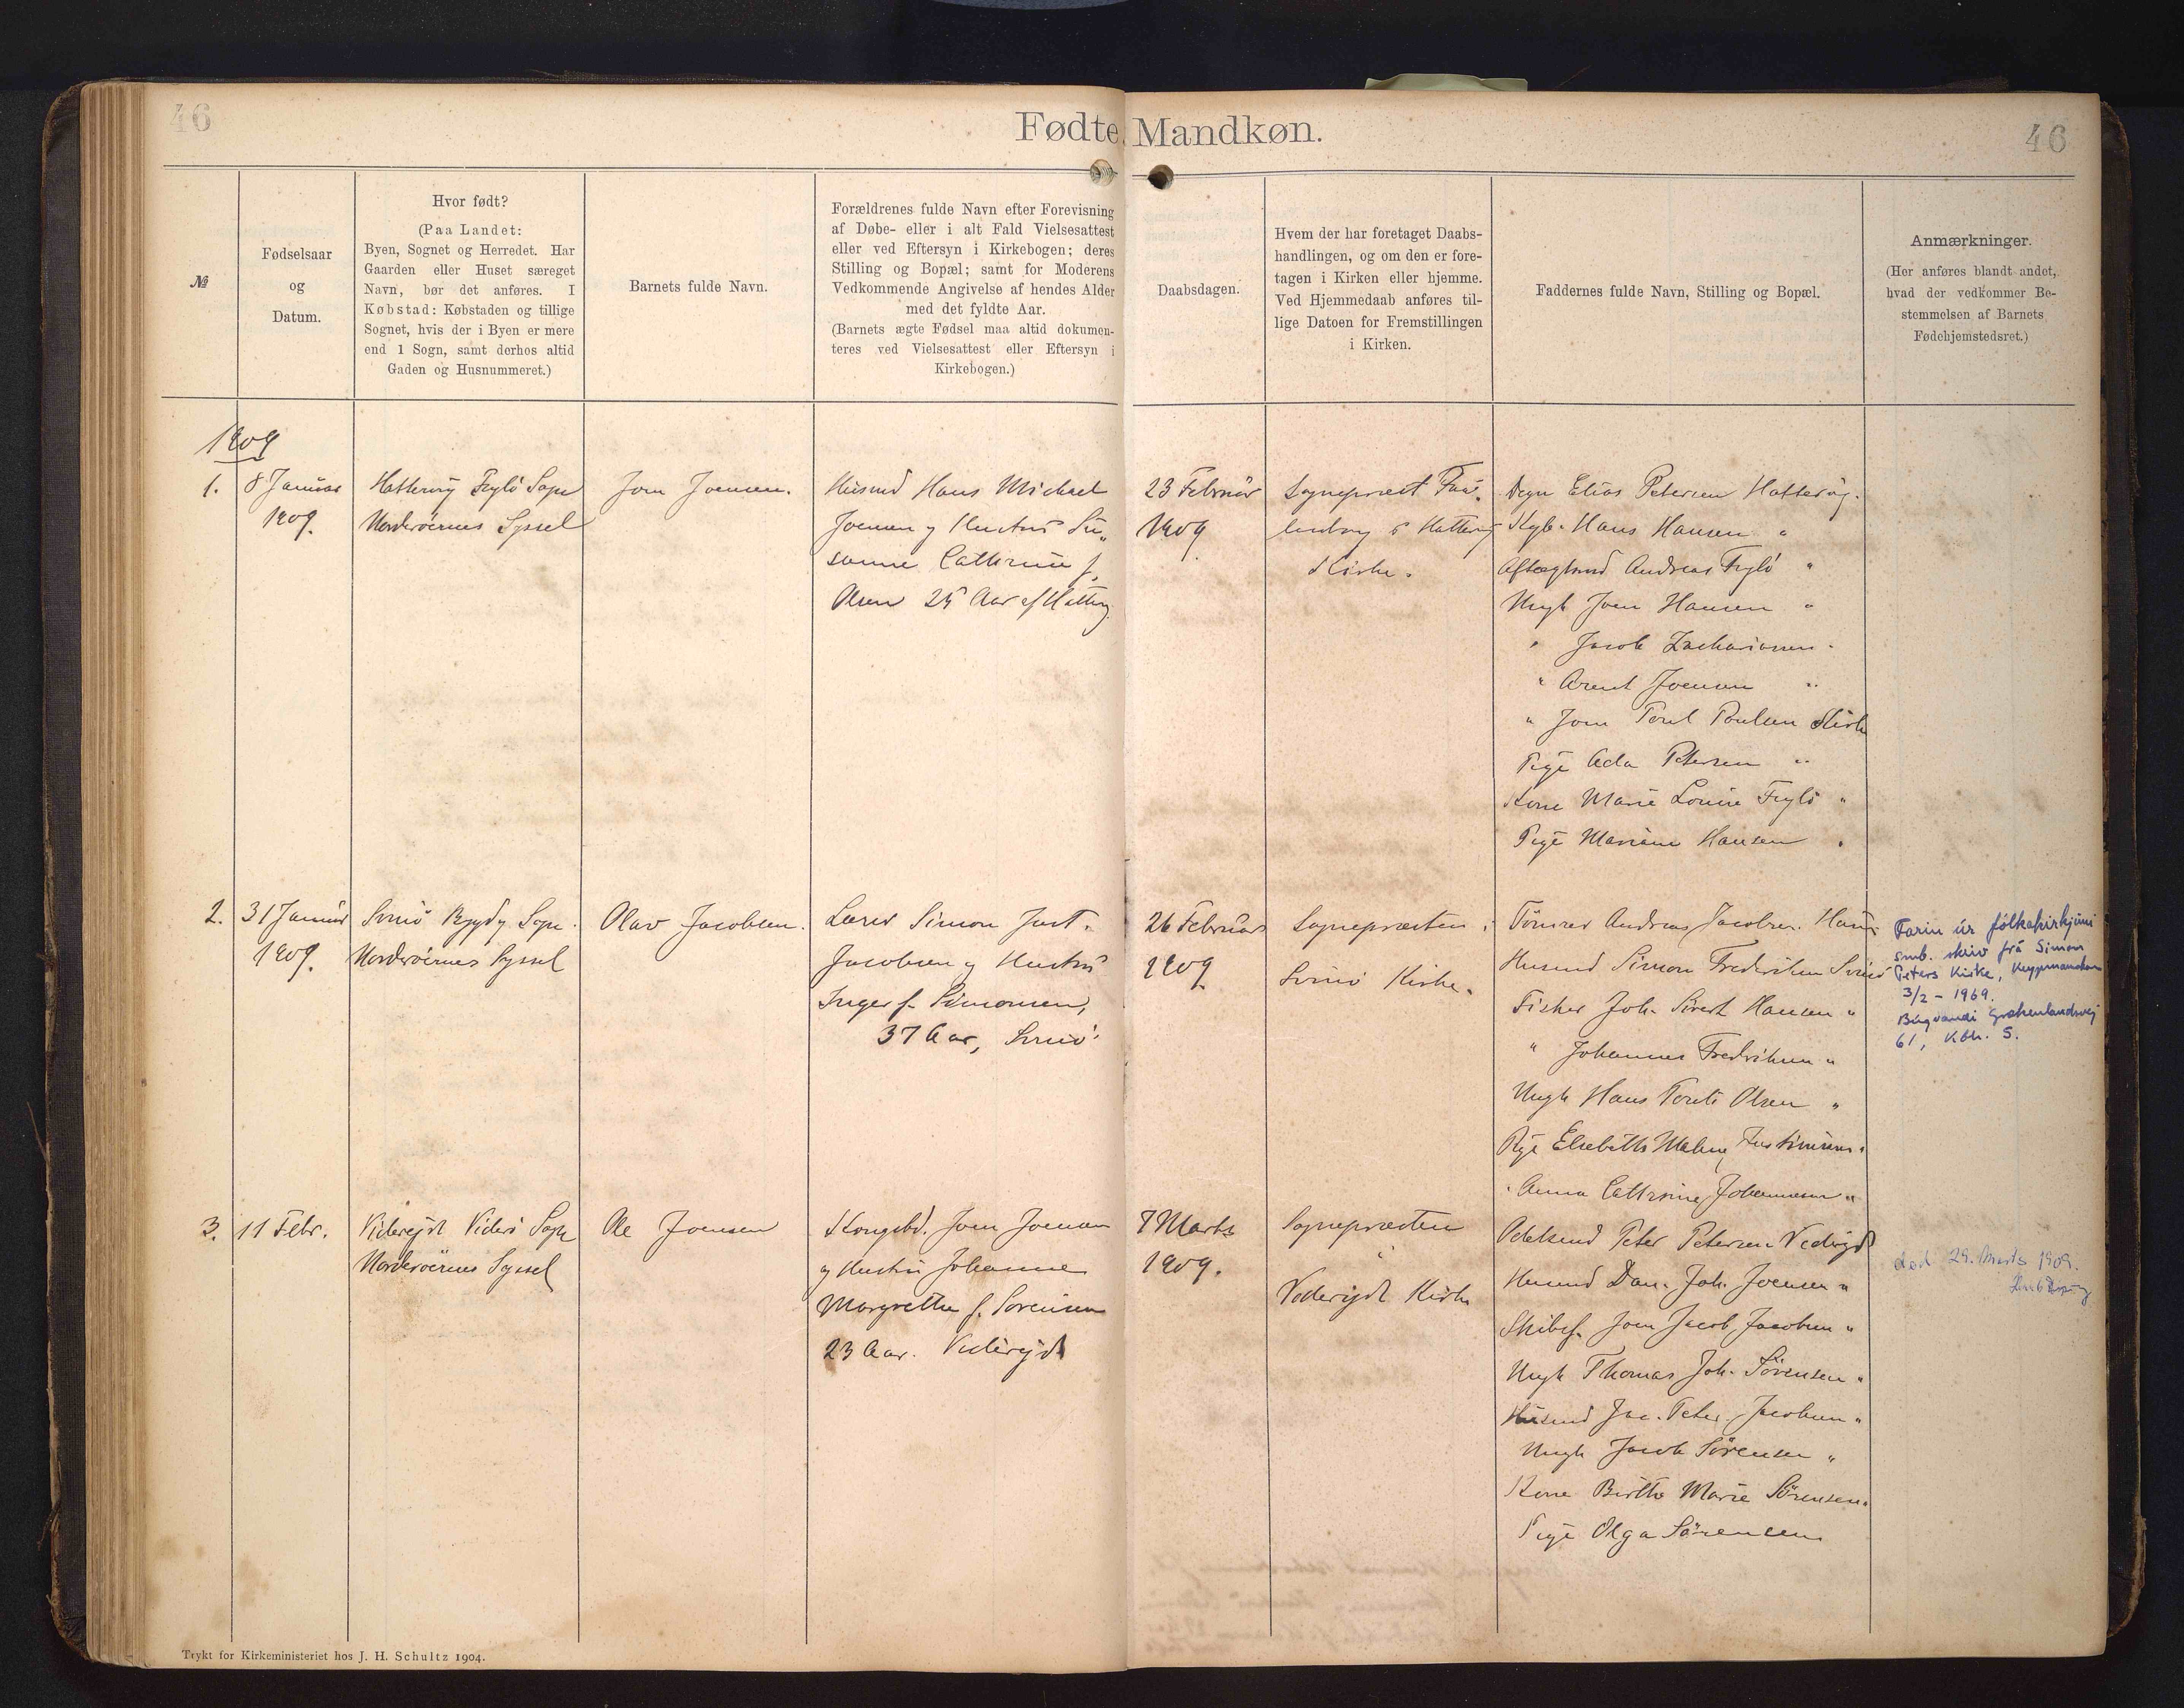 46
Fødte, Mandkøn.
46
№
Fødselsaar
og
Datum.
Hvor født?
(Paa Landet:
Byen, Sognet og Herredet. Har
Gaarden eller Huset særeget
Navn, bør det anføres. I
Købstad: Købstaden og tillige
Sognet, hvis der i Byen er mere
end 1 Sogn, samt derhos altid
Gaden og Husnummeret.)
Barnets fulde Navn.
Forældrenes fulde Navn efter Forevisning
af Døbe- eller i alt Fald Vielsesattest
eller ved Eftersyn i Kirkebogen; deres
Stilling og Bopæl; samt for Moderens
Vedkommende Angivelse af hendes Alder
med det fyldte Aar.
(Barnets ægte Fødsel maa altid dokumen-
teres ved Vielsesattest eller Eftersyn i
Kirkebogen.)
Daabsdagen.
Hvem der har foretaget Daabs-
handlingen, og om den er fore-
tagen i Kirken eller hjemme.
Ved Hjemmedaab anføres til-
lige Datoen for Fremstillingen
i Kirken.
Faddernes fulde Navn, Stilling og Bopæl.
Anmærkninger.
(Her anføres blandt andet,
hvad der vedkommer Be-
stemmelsen af Barnets
Fødehjemstedsret.)
1909
1.
8 Januar
1909.
Hattervig Fuglø Sogn
Norderøernes Syssel
Joen Joensen.
Husmd Hans Michael
Joensen og Hustru Su„
sanne Cathrine f.
Olsen 25 Aar af Hatterv.
23 Februar
1909
Sognepræst
i Hattervig
Kirke.
Degn Elias Petersen Hattervig.
Kgb. Hans Hansen "
Aftægtsmd Andreas Fuglø "
Ungk Joen Hansen "
" Jacob Zachariasen "
" Arent Joensen "
" Joen Poul Poulsen Kirke
Pige Ada Petersen "
Kone Marie Louise Fuglø "
Pige Mariane Hansen "
2.
31 Januar
1909.
Svinø Sogn.
Norderøernes Syssel
Olav Jacobsen.
Lærer Simon Just.
Jacobsen og Hustru
Inger f. Simonsen,
37 Aar, Svinø
26 Februar
1909
Sognepræsten i
Svinø Kirke.
Tømrer Andreas Jacobsen
Husmd Simon Frederiksen Svinø
Fisker Joh. Sivert Hansen "
" Johannes Fredriksen "
Ungk Hans Olsen "
Pige Elsebeth Malene Justinussen "
" Anna Cathrine Johannesen "
Farin úr fólkakirkjuni
smb. skriv frá Simon
Peters Kirke, Keypmannahavn
3/2 - 1969.
Búgvandi Grækenlandsvej
61, Kbh. S.
3.
11 Febr.
Viderejde Viderø Sogn
Norderøernes Syssel
Ole Joensen
Kongsbd. Joen Joensen
og Hustru Johanne
Margrethe f. Sørensen
23 Aar. Viderejde
7 Marts
1909.
Sognepræsten
i
Viderejde Kirke
Odelsmd Peter Petersen Viderejde
Husmd Dan. Joh. Joensen "
Skibsf. Joen Jacob Jacobsen "
Ungk Thomas Joh. Sörensen "
Husmd Jac. Peter Jacobsen "
Ungk Jacob Sörensen "
Kone Birthe Marie Sörensen "
Pige Olga Sörensen
død 29. Marts 1909.
Trykt for Kirkeministeriet hos J. H. Schultz 1904.